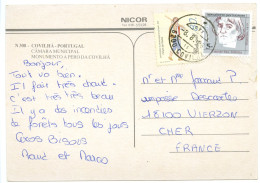 NICOR
N 308 - COVILHÃ - PORTUGAL
CÂMARA MUNICIPAL
MONUMENTO A PERO DA COVILHÃ
Bonjour,
Tout va bien.
Il fait très chaud.
C'est très très beau
Il y a des incendies
de forêts tous les jours
Gros Bisous
Maud et Marco
Mr et Mme
impasse Descartes
18100 VIERZON
CHER
FRANCE